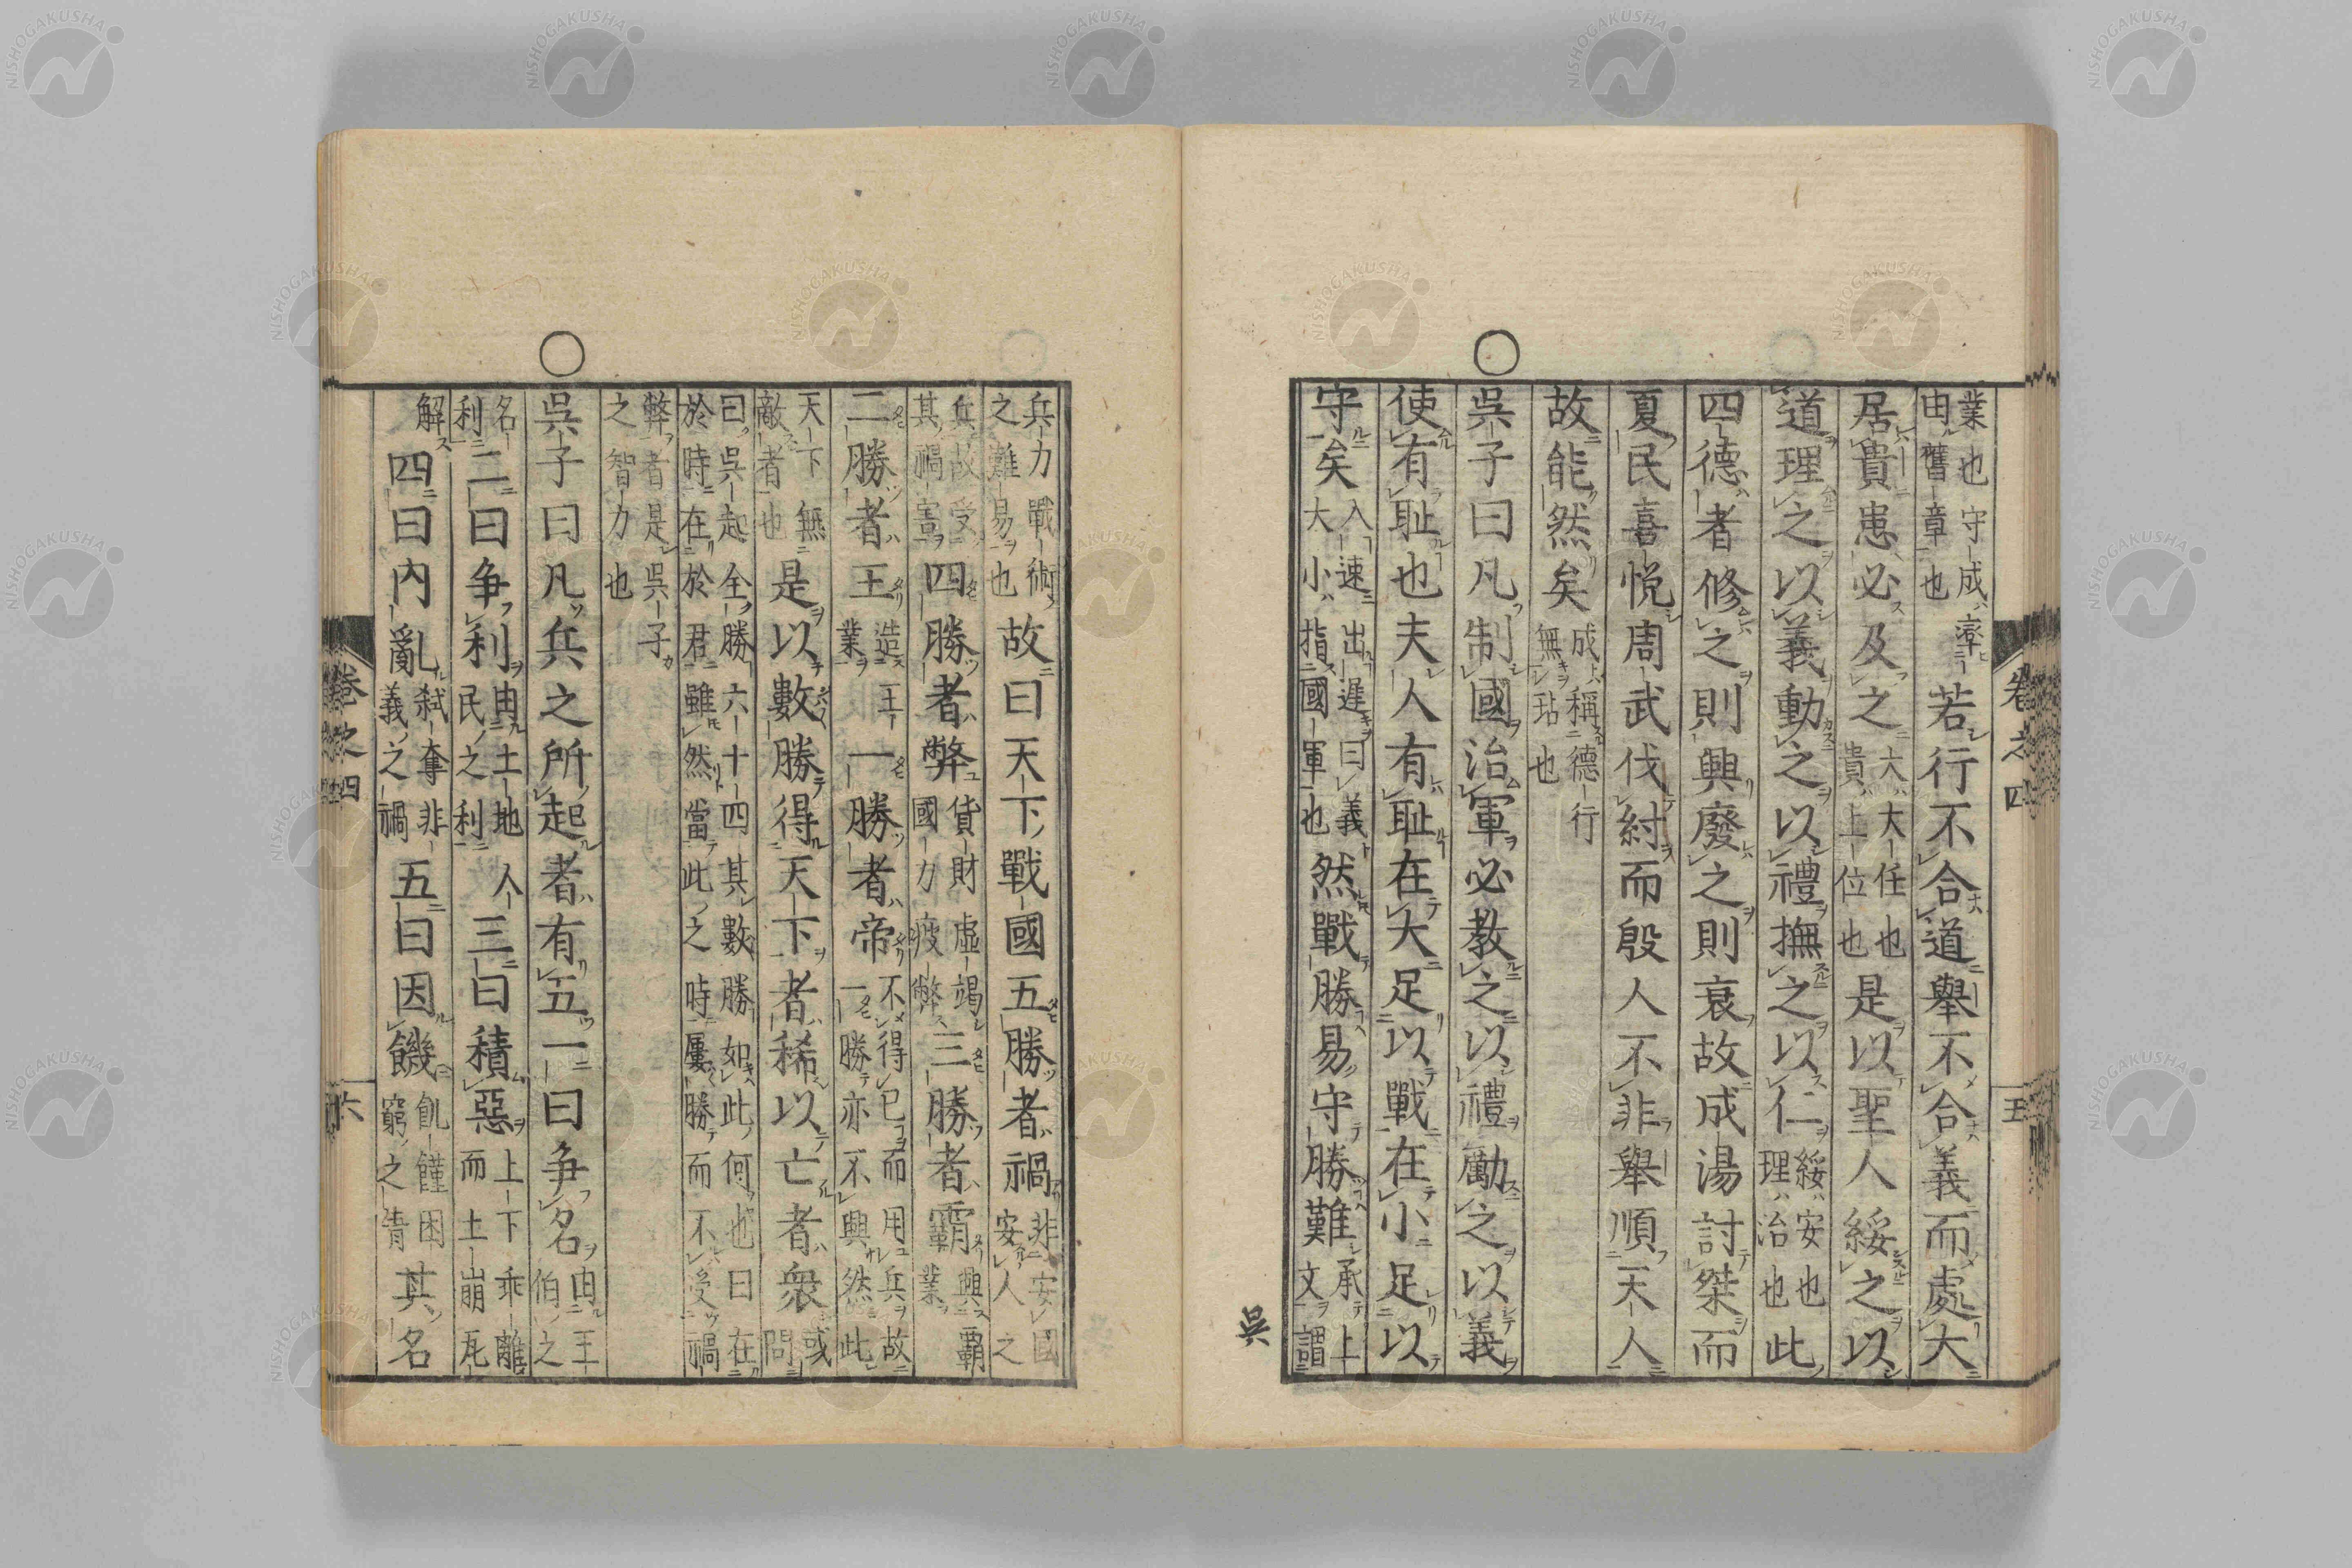 業也守成由舊章也若行不合道舉不合義而處大
居貴患必及之大大任也貴上位也是以聖人綏之以
道理之以義動之以禮撫之以仁綏安也理治也此
四德者修之則興廢之則衰故成湯討桀而
夏民喜悅周武伐紂而殷人不非舉順天人
故能然矣成稱德行無玷也
○吳子曰凡制國治軍必教之以禮勵之以義
使有耻也夫人有耻在大足以戰在小足以
守矣入速出遲曰義大小指國軍也然戰勝易守勝難承上文謂
卷之四
五
吳
兵力戰術之難易也故曰天下戰國五勝者禍非安國安人之
兵故受其禍害四勝者弊貨財虛竭國力疲弊三勝者霸興覇業
二勝者王造王業一勝者帝不得已而用兵故一勝亦不興然此
天下無敵者也是以數勝得天下者稀以亡者衆或問
曰吳起全勝六十四其數勝如此何也曰在於時在於君雖然當此之時屢勝而不受禍
弊者是吳子之智力也
○吳子曰凡兵之所起者有五一曰争名由王伯之
名利二曰争利由土地人民之利三曰積惡上下乖離而土崩瓦
解四曰內亂弒奪非義之禍五曰因饑飢饉困窮之眚其名
卷之四
六
NISHOGAKUSHA